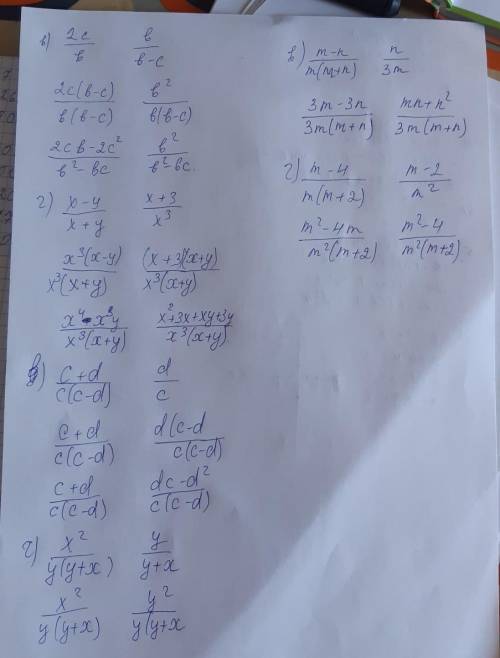 в) 2c/в в/(в-c)
2c(в-c)/в(в-c) в²/в(в-c)
(2cв-2c²)/(в²-вc) в²/(в²-вc).
г) (x-y)/(x+y) (x+3)/x³
x³(x-y)/x³(x+y) (x+3)(x+y)/x³(x+y)
(x⁴-x³y)/x³(x+y) (x²+3x+xy+3y)/x³(x+y)
в) (c+d)/c(c-d) d/c
(c+d)/c(c-d) d(c-d/c(c-d)
(c+d)/c(c-d) (dc-d²)/c(c-d)
г) x²/y(y+x) y/(y+x)
x²/y(y+x) y²/y(y+x
в) (m-n)/m(m+n) n/3m
(3m-3n)/3m(m+n) (mn+n²)/3m(m+n)
г) (m-4)/m(m+2) (m-2)/m²
(m²-4m)/m²(m+2) (m²-4)/m²(m+2)